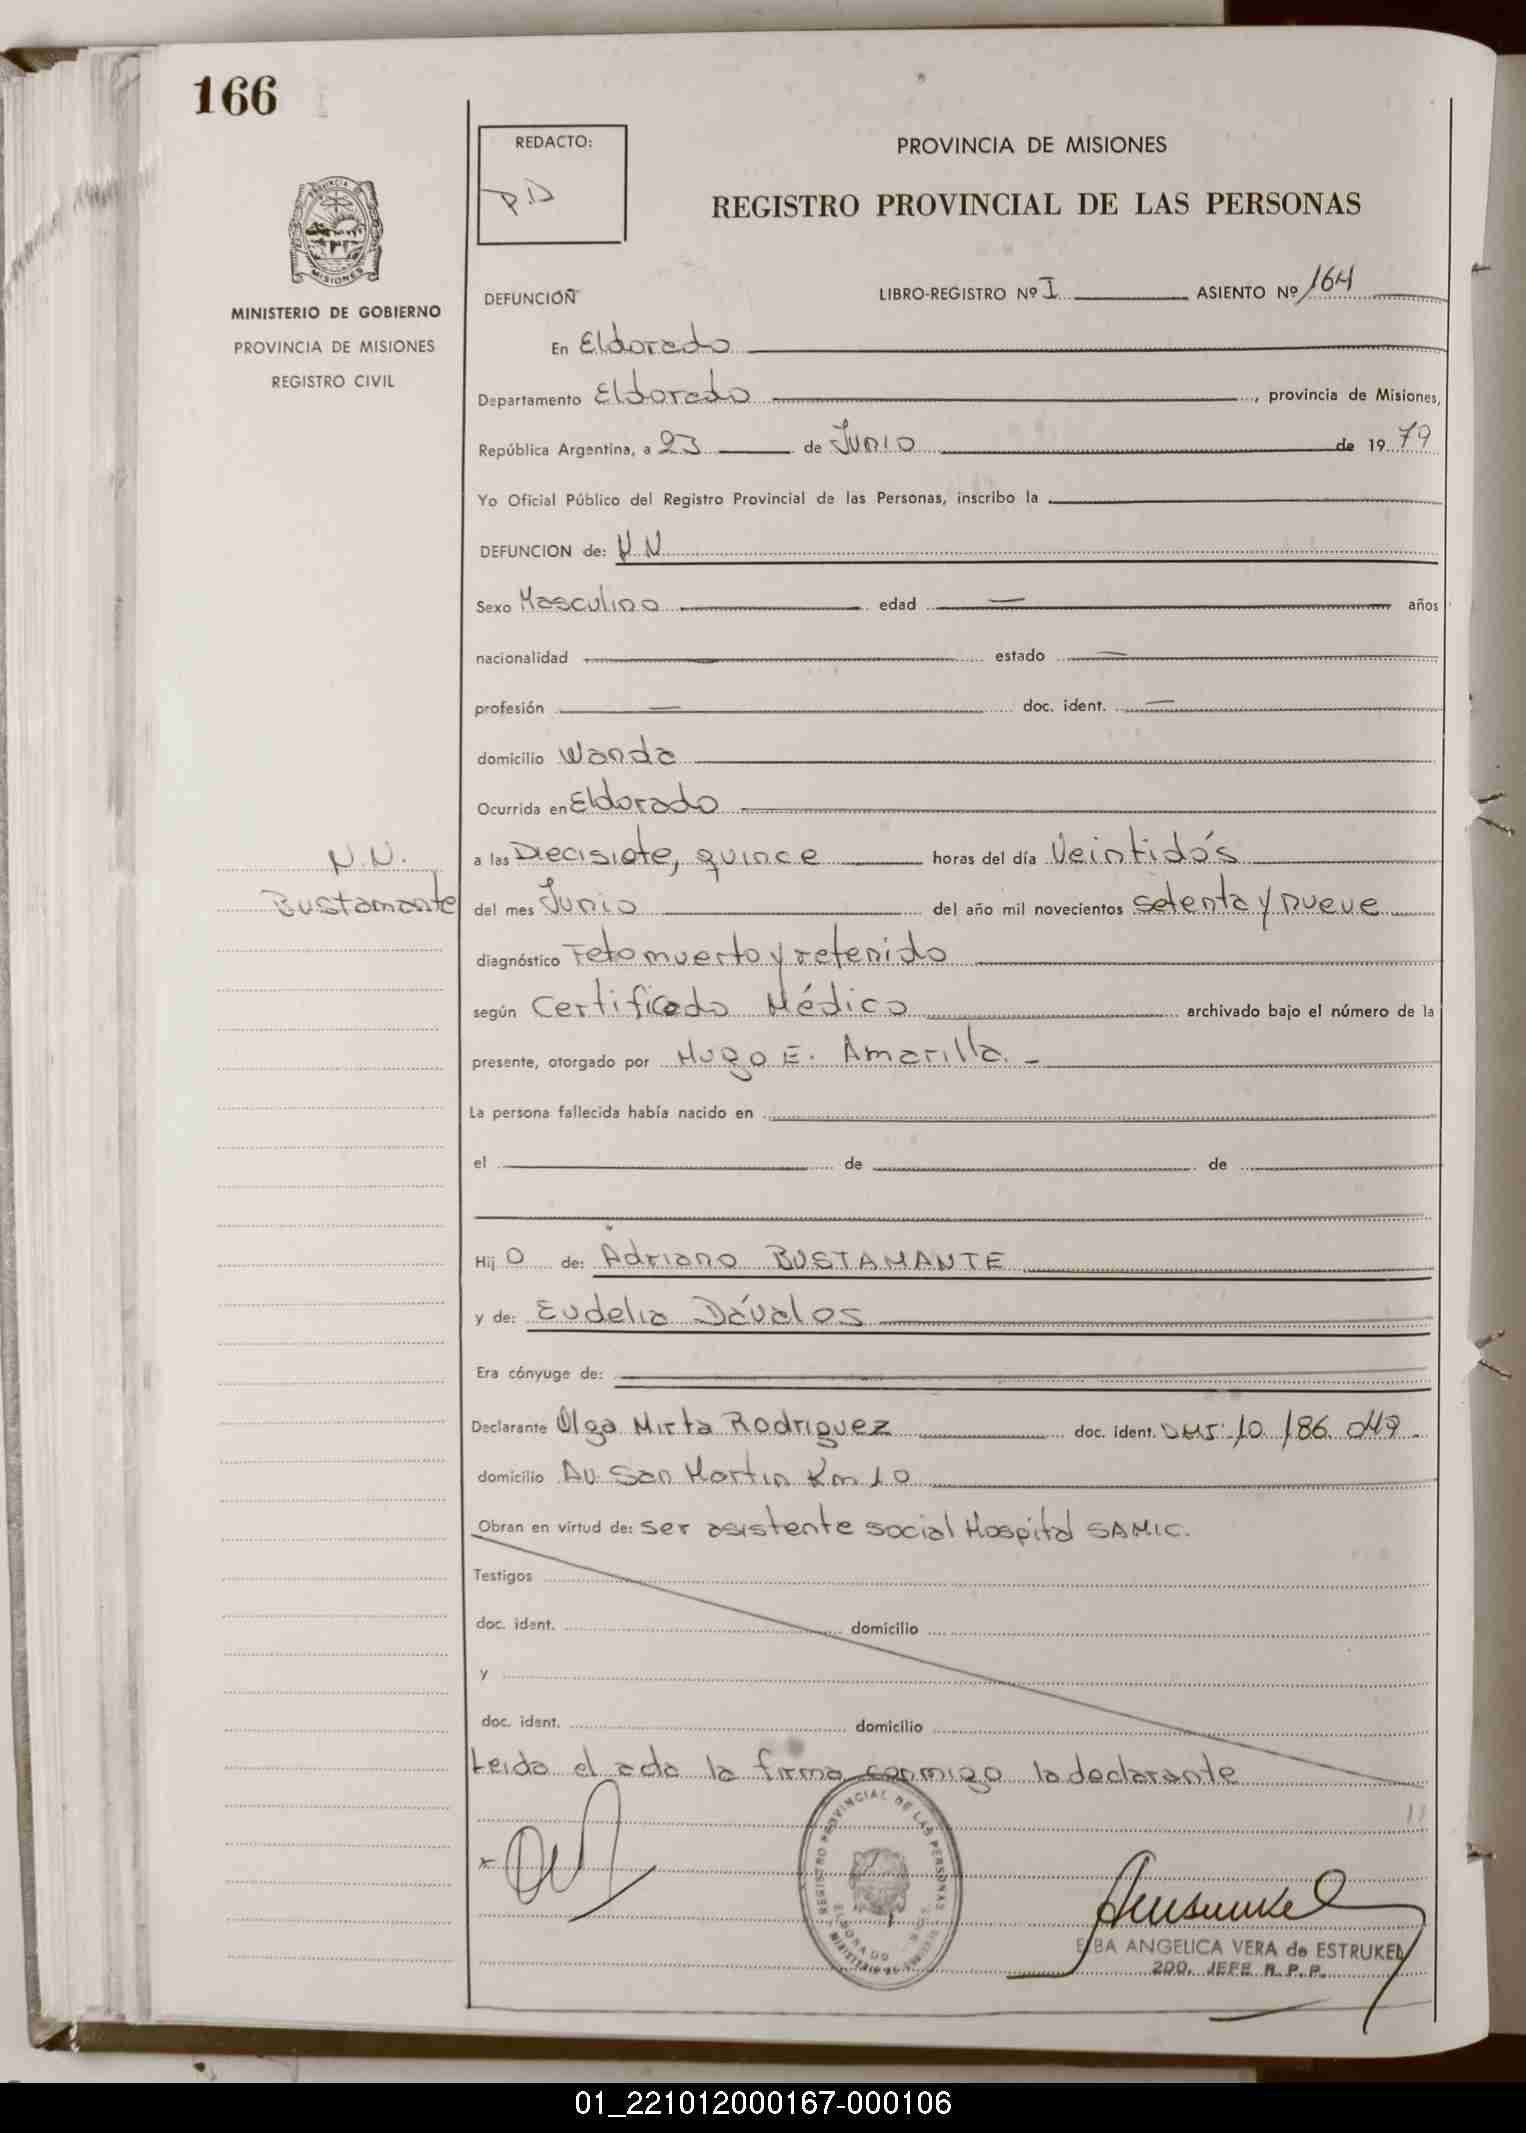 166
REDACTO:
P.D
PROVINCIA DE MISIONES
REGISTRO PROVINCIAL DE LAS PERSONAS
MISIONES
MINISTERIO DE GOBIERNO
PROVINCIA DE MISIONES
REGISTRO CIVIL
DEFUNCIÓN LIBRO-REGISTRO Nº I ASIENTO Nº 164
En Eldorado
Departamento Eldorado, provincia de Misiones,
República Argentina, a 23 de Junio de 1979
Yo Oficial Público del Registro Provincial de las Personas, inscribo la
DEFUNCION de: N N
Sexo Masculino edad — años
nacionalidad — estado —
profesión — doc. ident. —
domicilio Wanda
Ocurrida en Eldorado
N.N.
Bustamante
a las Diecisiete, quince horas del día Veintidós
del mes Junio del año mil novecientos setenta y nueve
diagnóstico Feto muerto y retenido
según Certificado Médico archivado bajo el número de la
presente, otorgado por Hugo E. Amarilla. -
La persona fallecida había nacido en
el de de
Hij o de: Adriano BUSTAMANTE
y de: Eudelia Dávalos
Era cónyuge de:
Declarante Olga Mirta Rodriguez doc. ident. DMI: 10.186.049.
domicilio Av. San Martin Km 10
Obran en virtud de: ser asistente social Hospital SAMIC.
Testigos
doc. ident. domicilio
y
doc. ident. domicilio
Leida el acta la firma conmigo la declarante
REGISTRO PROVINCIAL DE LAS PERSONAS
ELDORADO
ELBA ANGELICA VERA de ESTRUKEL
2DO. JEFE R.P.P.
01_221012000167-000106